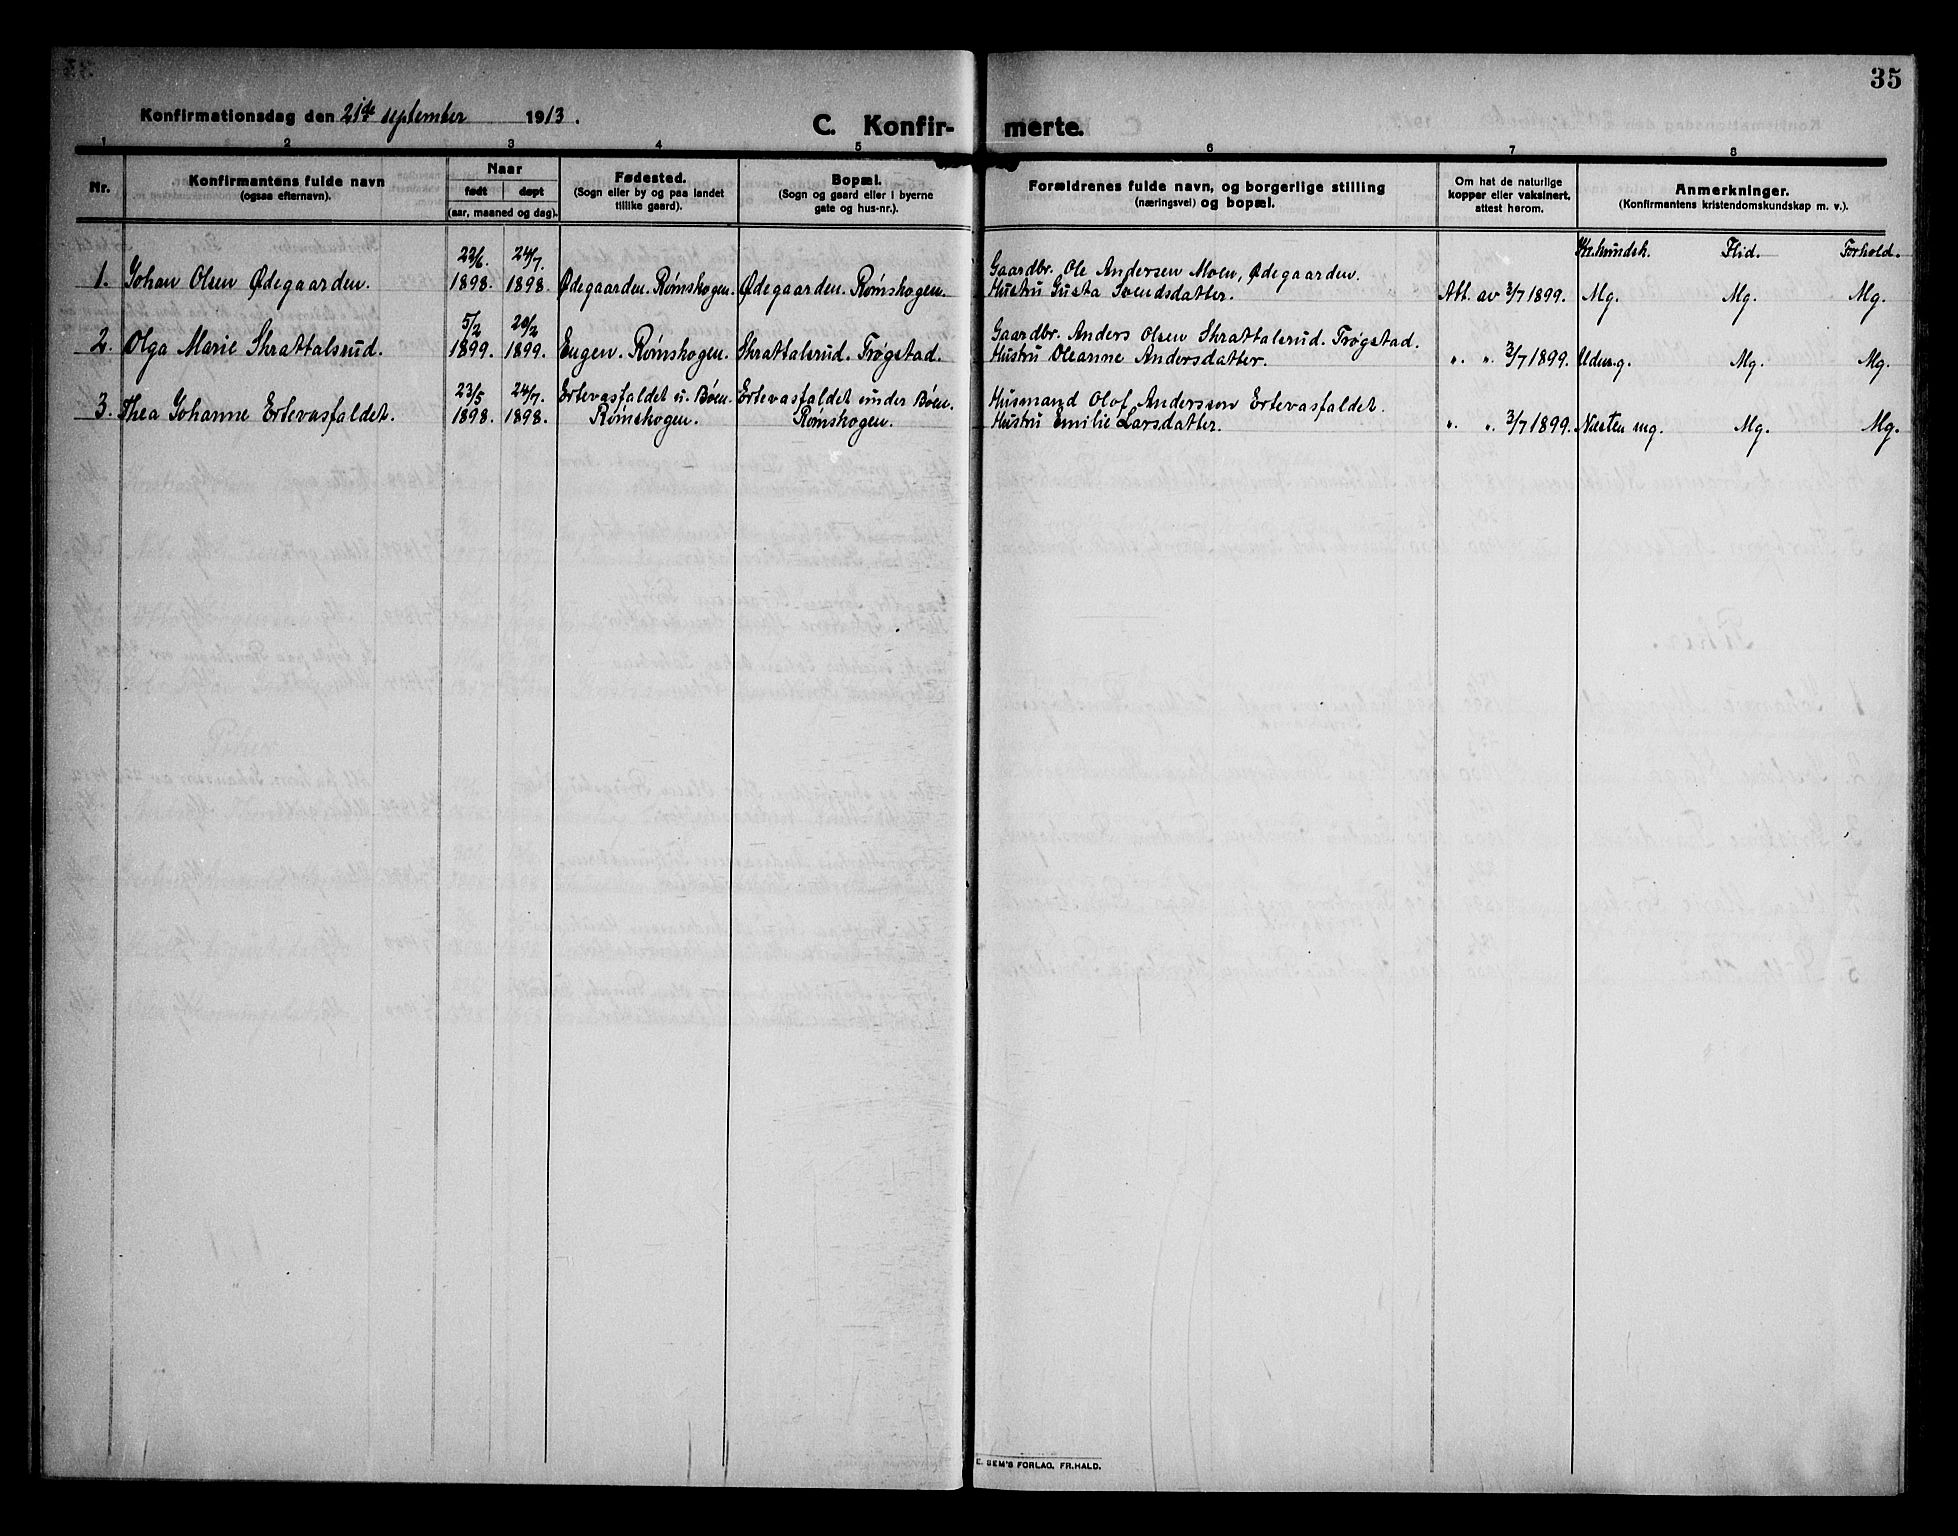 35
Konfirmationsdag den 21de september 1913.
C. Konfir- merte.
1 2 3 4 5 6 7 8
Nr.
Konfirmantens fulde navn
(ogsaa efternavn).
Naar
født døpt
(aar, maaned og dag).
Fødested.
(Sogn eller by og paa landet
tillike gaard).
Bopæl.
(Sogn og gaard eller i byerne
gate og hus-nr.).
Forældrenes fulde navn, og borgerlige stilling
(næringsvei) og bopæl.
Om hat de naturlige
kopper eller vaksinert,
attest herom.
Anmerkninger.
(Konfirmantens kristendomskundskap m. v.).
Kr. kundsk. Flid. Forhold.
22/6. 24/7. Gaardbr. Ole Andersen Moen, Ødegaarden.
1. Johan Olsen Ødegaarden. 1898. 1898. Ødegaarden. Rømskogen. Ødegaarden. Rømskogen. Hustru Gusta Svendsdatter. Att. av 3/7 1899. Mg. Mg. Mg.
5/2 20/2 Gaardbr. Anders Olsen Skrattalsrud. Trøgstad.
2. Olga Marie Skrattalsrud. 1899. 1899. Eugen. Rømskogen. Skrattalsrud. Trøgstad. Hustru Oleanne Andersdatter. " " 3/7 1899. Udm.g. Mg. Mg.
23/5 24/7. Ertevasfaldet u. Bøen. Ertevasfaldet under Bøen. Husmand Olof Andersson Ertevasfaldet.
3. Thea Johanne Ertevasfaldet. 1898. 1898. Rømskogen. Rømskogen. Hustru Emilie Larsdatter. " " 3/7 1899. Næsten mg. Mg. Mg.
E. SEM'S FORLAG, FR.HALD.